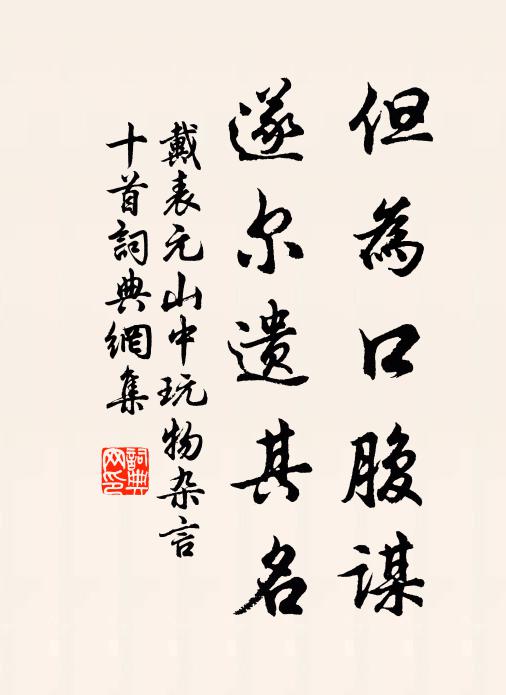 但為口腹謀
遂尔遗其名
戴表元山中玩物杂言
十首詞典網集
詞典
网印